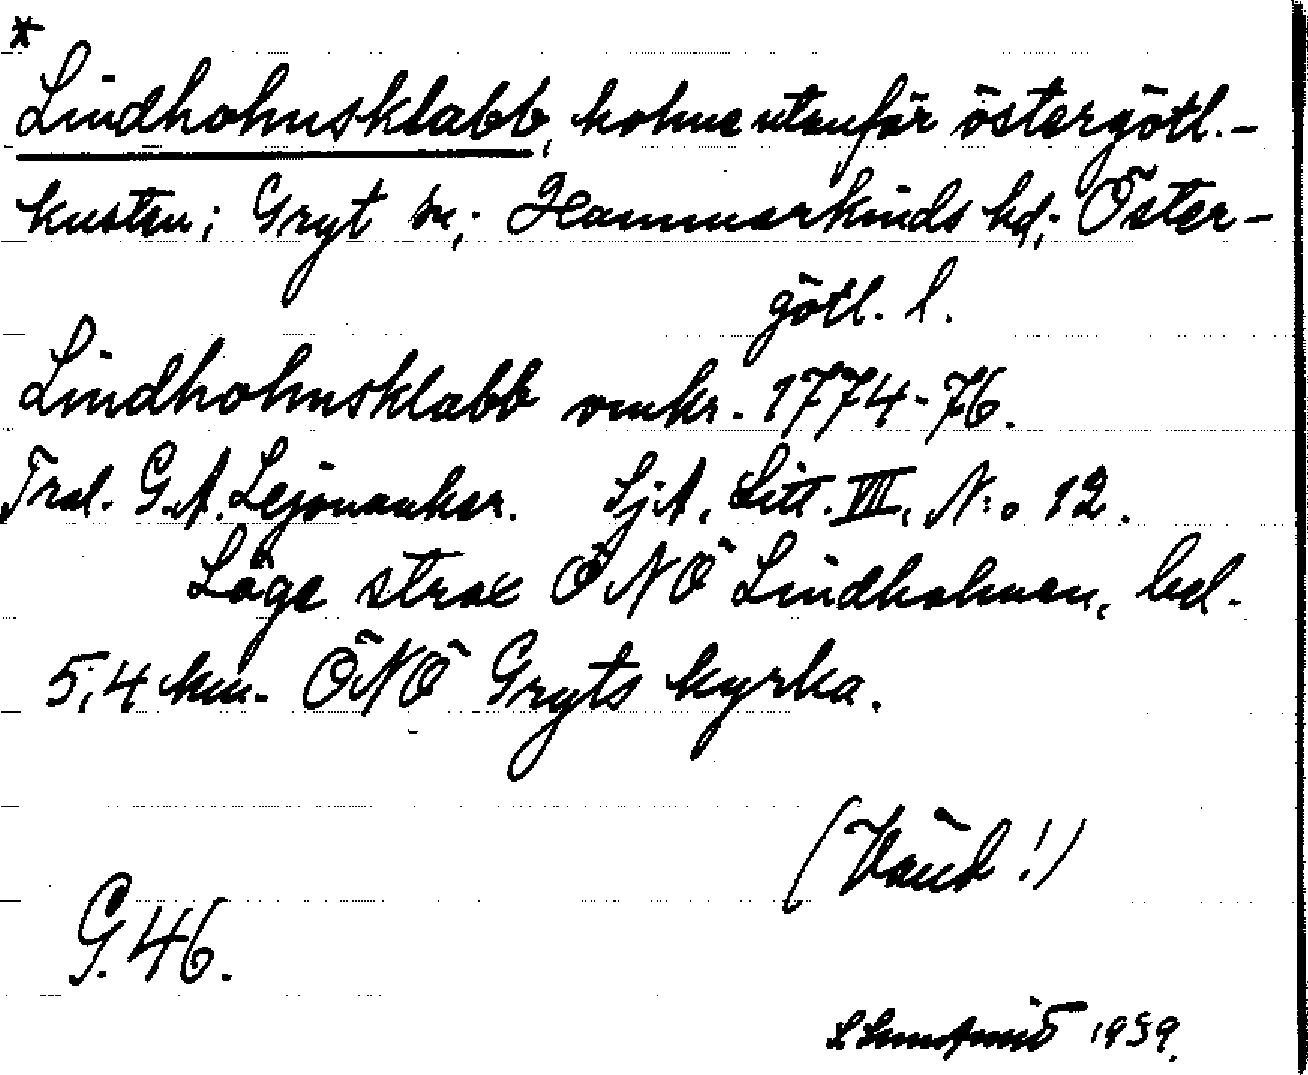 *
Lindholmsklabb, holme utanför östergötl.-
kusten; Gryt sn; Hammarkinds hd; Öster-
götl. l.
Lindholmsklabb omkr. 1774-76.
Trol. G.A. Lejonanker. Sj.A. Litt. VIII, N:o 12.
Läge strax ÖNÖ Lindholmen, bel.
5,4 km. ÖNÖ Gryts kyrka.
(Vänd!)
G.46.
1939.